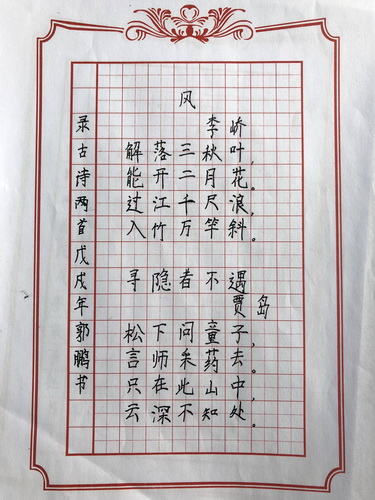 风
李峤
解落三秋叶，
能开二月花。
过江千尺浪，
入竹万竿斜。
寻隐者不遇
贾岛
松下问童子，
言师采药去。
只在此山中，
云深不知处。
录古诗两首戊戌年郭鹏书